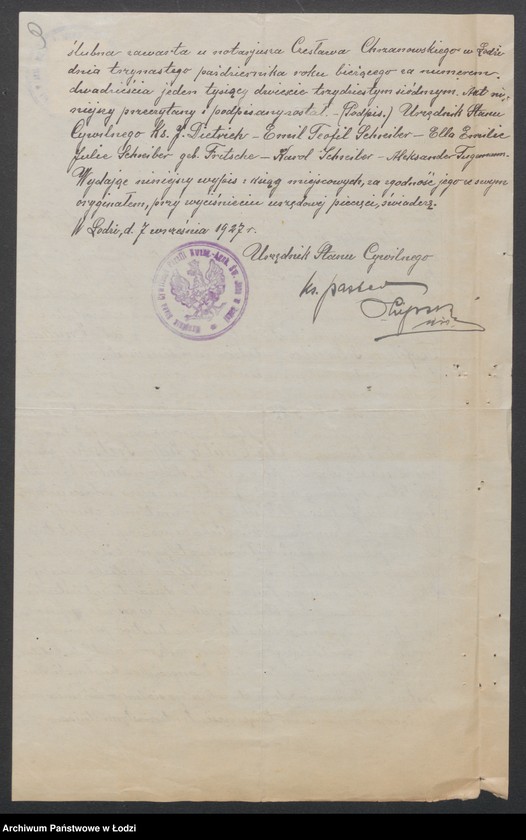 ślubna zawarta u notarjusza Czesława Chrzanowskiego w Łodzi
dnia trzynastego października roku bieżącego za numerem
dwadzieścia jeden tysięcy dwieście trzydziestym siódmym. Akt ni-
niejszy przeczytany i podpisany został. - (Podpis.) Urzędnik Stanu
Cywilnego Ks. J. Dietrich - Emil Teofil Schreiber - Ella Emilie
Julie Schreiber geb. Fritsche - Karol Schreiber - Aleksander
Wydając niniejszy wypis z ksiąg miejscowych, za zgodność jego ze swym
oryginałem, przy wyciśnieniu urzędowej pieczęci, świadczę.
W Łodzi, d. 7 września 1927 r.
Urzędnik Stanu Cywilnego
ks. pastor
Archiwum Państwowe w Łodzi